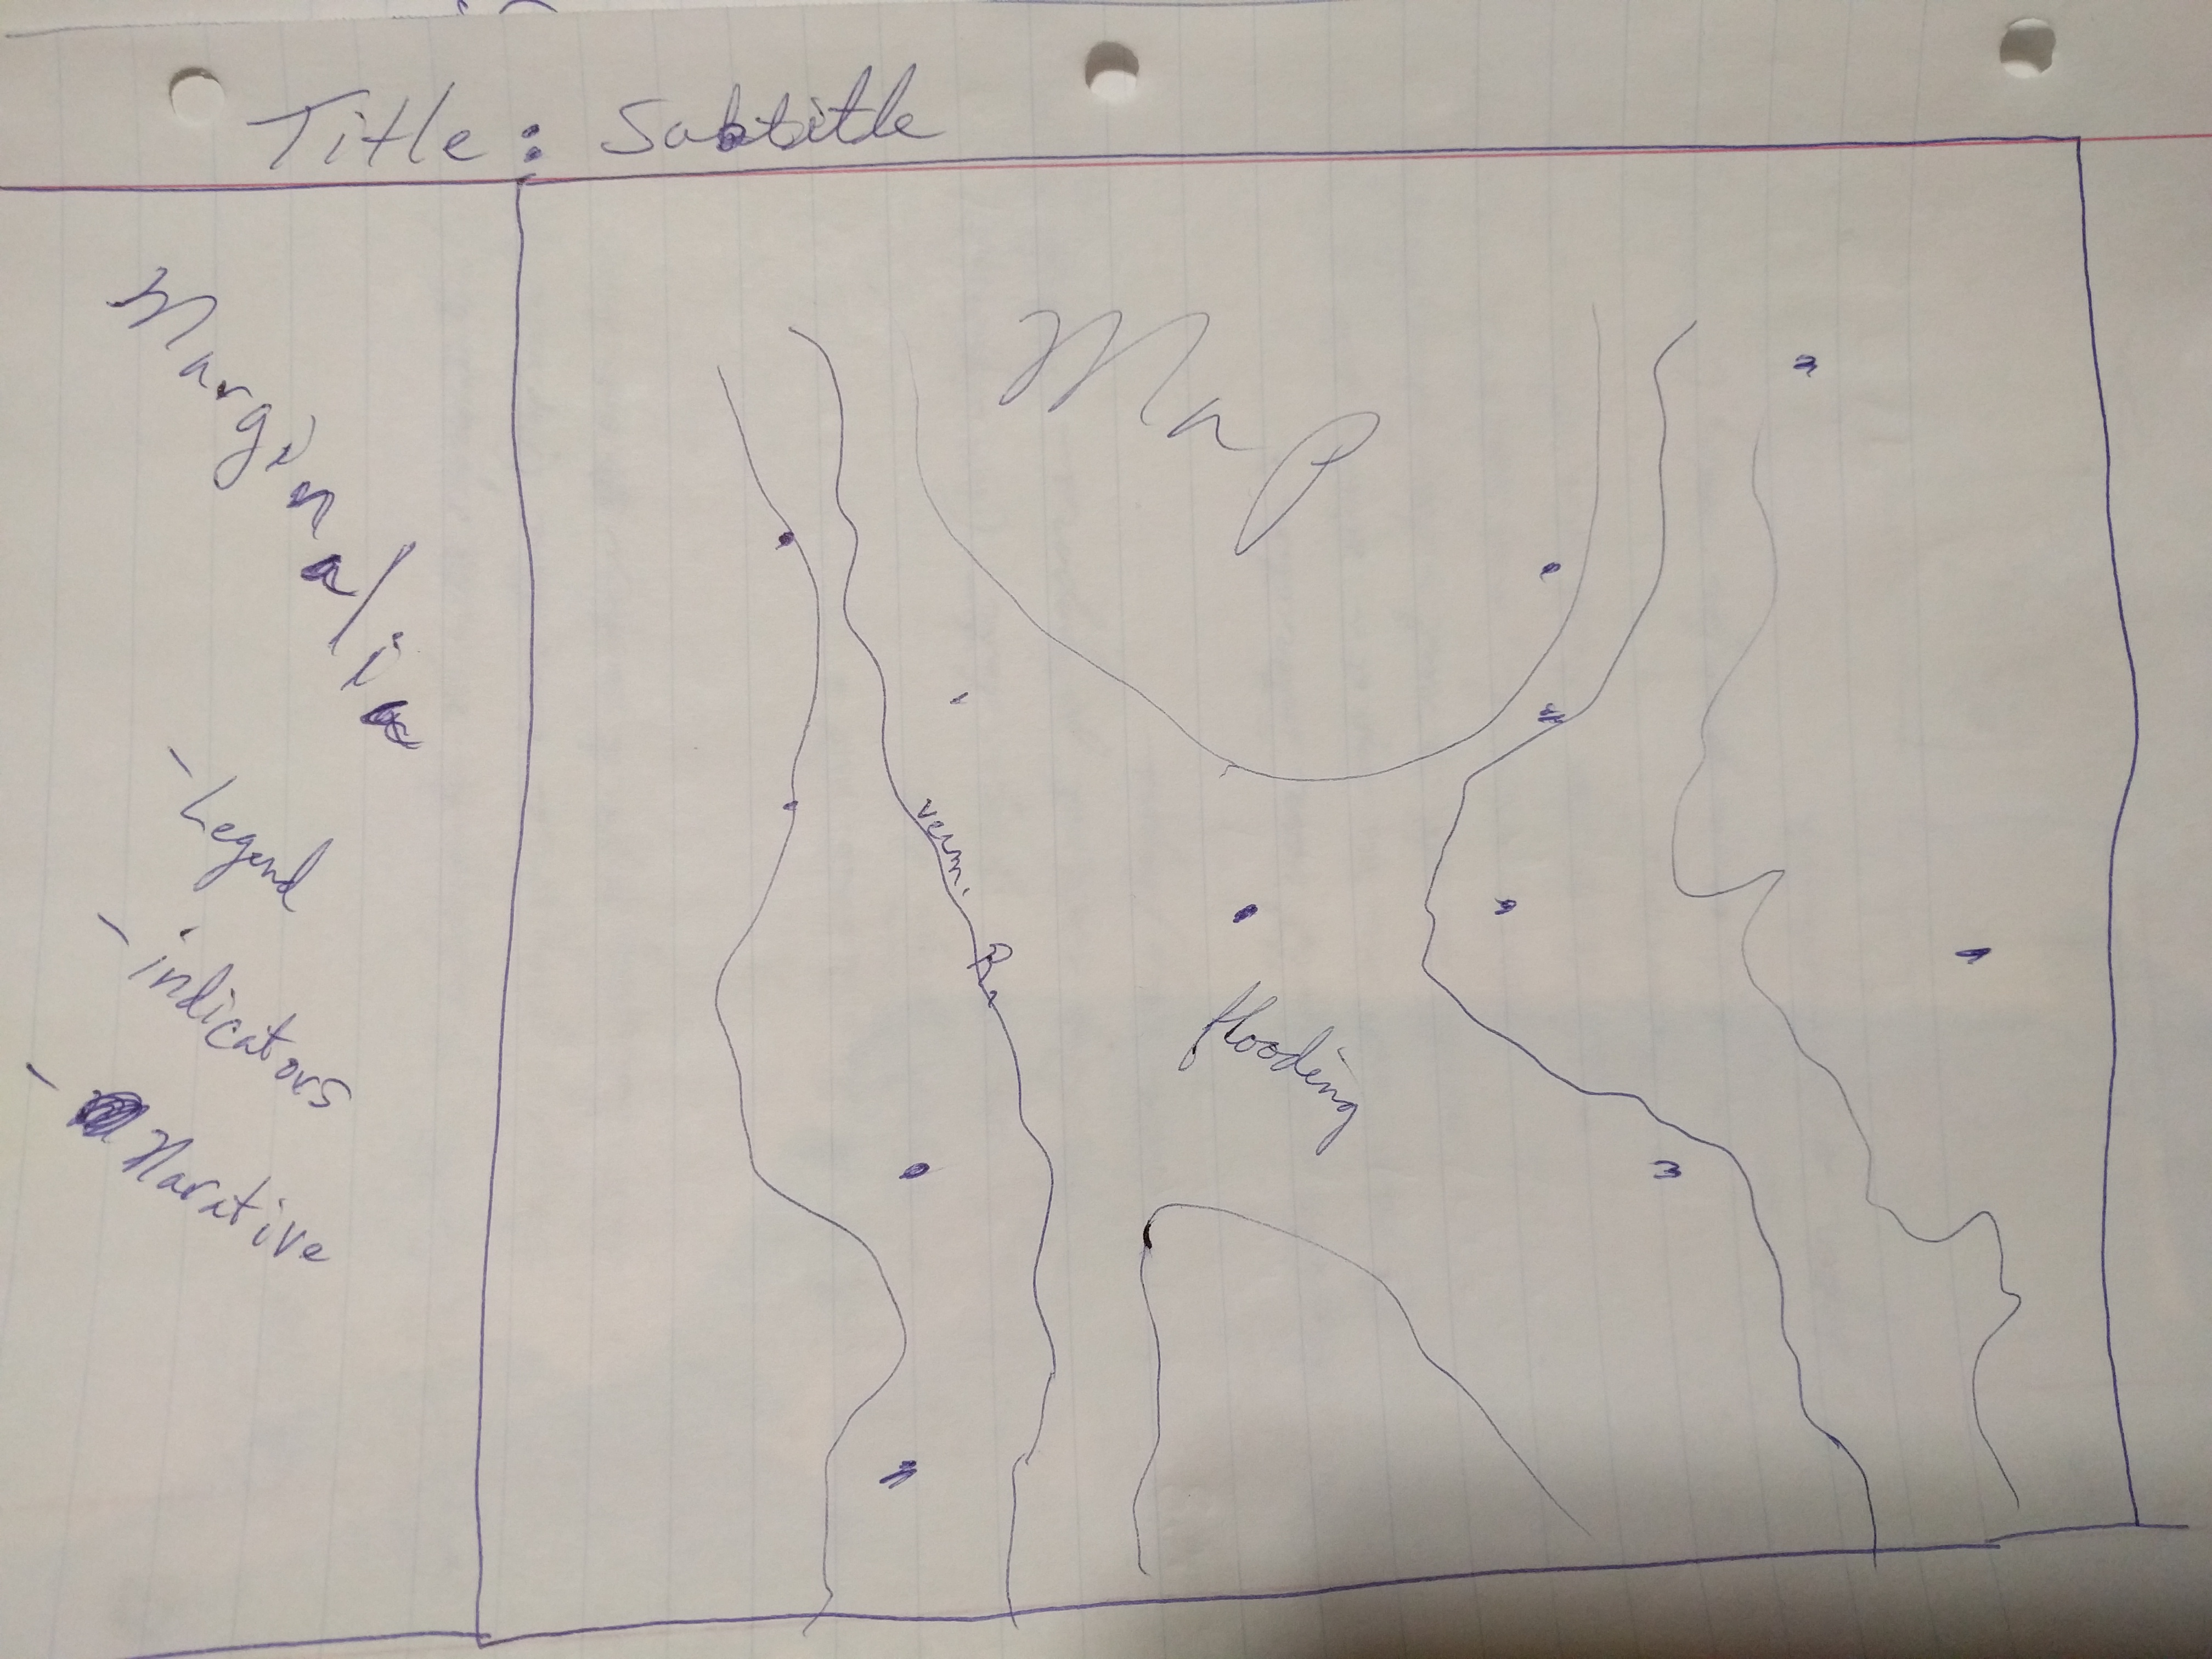 Title: Subtitle
Marginalia
- Legend
- indicators
- Narative
Map
Verm.
flooding